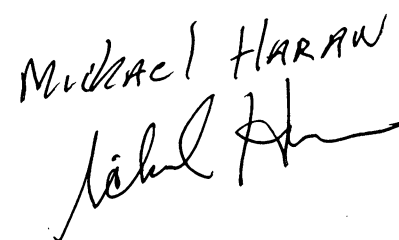 Michael Haran
Michael H